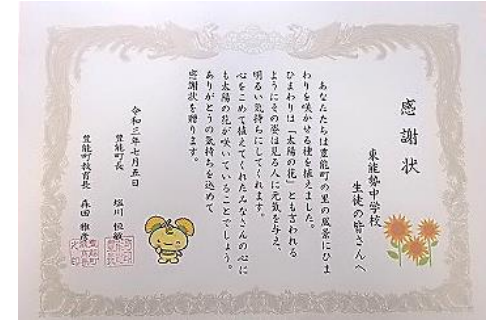 感謝状
東能勢中学校
生徒の皆さんへ
あなたたちは豊能町の里の風景にひま
わりを咲かせる種を植えました。
ひまわりは「太陽の花」とも言われる
ようにその姿は見る人に元気を与え、
明るい気持ちにしてくれます。
心をこめて植えてくれたみなさんの心に
も太陽の花が咲いていることでしょう。
ありがとうの気持ちを込めて
感謝状を贈ります。
令和三年七月五日
豊能町長 塩川 恒敏
豊能町教育長 森田 雅彦